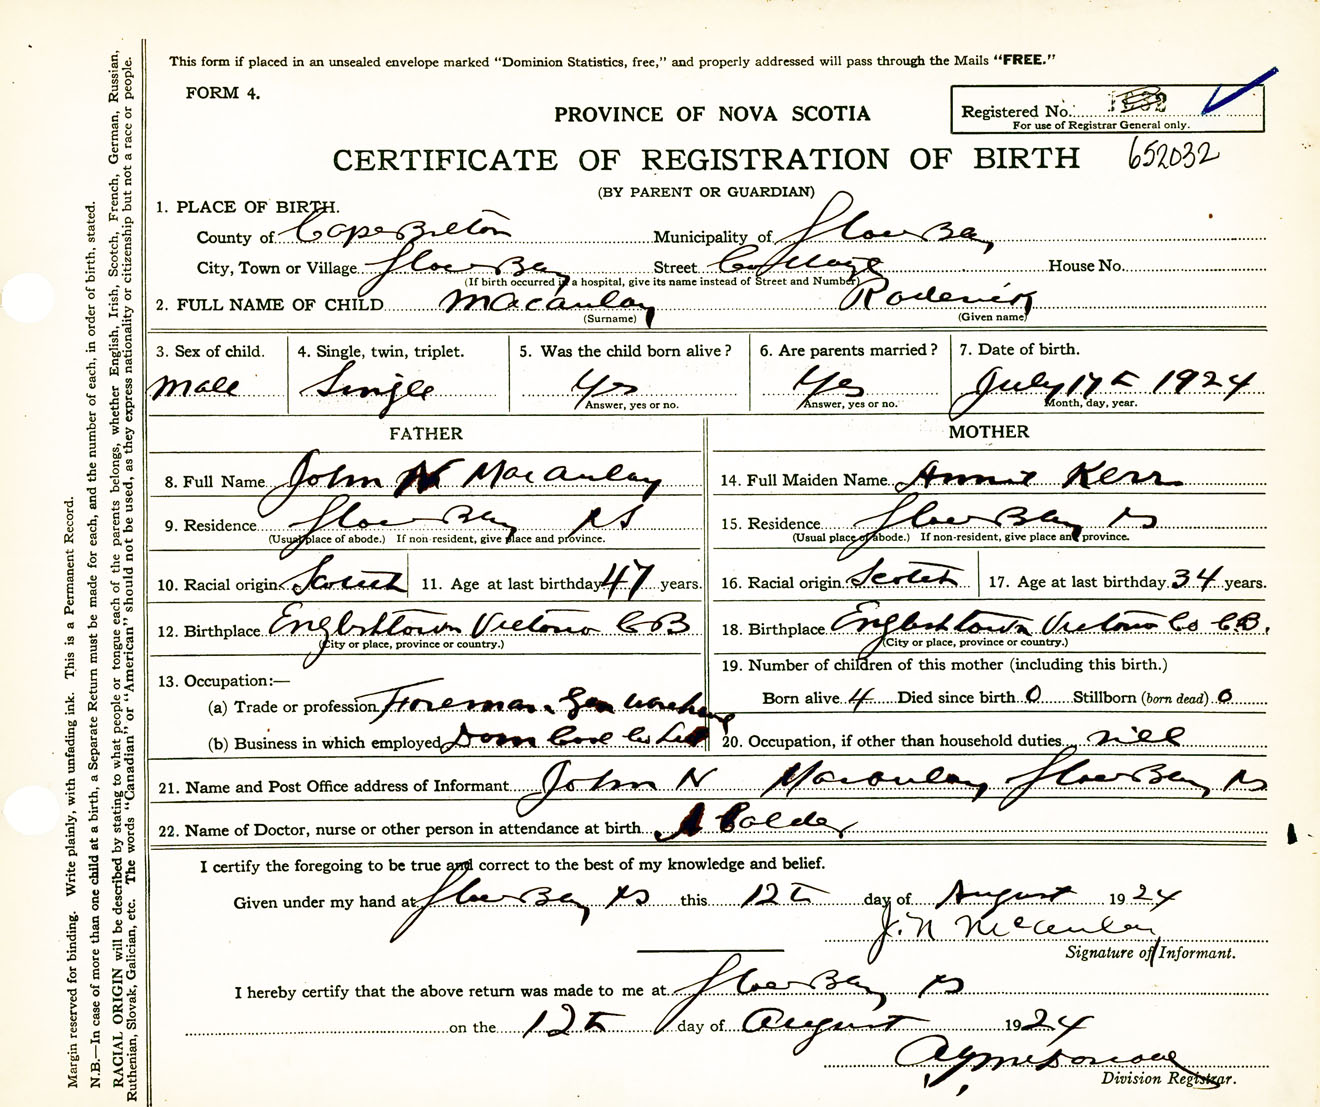 This form if placed in an unsealed envelope marked "Dominion Statistics, free," and properly addressed will pass through the Mails "FREE."
FORM 4.
PROVINCE OF NOVA SCOTIA
Registered No.
For use of Registrar General only.
CERTIFICATE OF REGISTRATION OF BIRTH 652032
(BY PARENT OR GUARDIAN)
1. PLACE OF BIRTH.
County of Cape Breton Municipality of Glace Bay
City, Town or Village Glace Bay Street House No.
(If birth occurred in a hospital, give its name instead of Street and Number)
2. FULL NAME OF CHILD Macaulay Roderick
(Surname) (Given name)
3. Sex of child. 4. Single, twin, triplet. 5. Was the child born alive? 6. Are parents married? 7. Date of birth.
Male Single Yes Yes July 17th 1924
Answer, yes or no. Answer, yes or no. Month, day, year.
FATHER MOTHER
8. Full Name John N Macaulay 14. Full Maiden Name Annie Kerr
9. Residence Glace Bay NS 15. Residence Glace Bay NS
(Usual place of abode.) If non-resident, give place and province. (Usual place of abode.) If non-resident, give place and province.
10. Racial origin Scotch 11. Age at last birthday 47 years. 16. Racial origin Scotch 17. Age at last birthday 34 years.
12. Birthplace Englishtown Victoria CB 18. Birthplace Englishtown Victoria Co C.B.
(City or place, province or country.) (City or place, province or country.)
19. Number of children of this mother (including this birth.)
13. Occupation:—
(a) Trade or profession Foreman Gen Warehouse Born alive 4 Died since birth 0 Stillborn (born dead) 0
(b) Business in which employed Dom Coal Co Ltd 20. Occupation, if other than household duties nill
21. Name and Post Office address of Informant John N Macaulay Glace Bay NS
22. Name of Doctor, nurse or other person in attendance at birth Calder
I certify the foregoing to be true and correct to the best of my knowledge and belief.
Given under my hand at Glace Bay NS this 12th day of August 1924
J. N McAulay
Signature of Informant.
I hereby certify that the above return was made to me at Glace Bay NS
on the 12th day of August 1924
Division Registrar.
Margin reserved for binding. Write plainly, with unfading ink. This is a Permanent Record.
N.B.—In case of more than one child at a birth, a Separate Return must be made for each, and the number of each, in order of birth. stated.
RACIAL ORIGIN will be described by stating to what people or tongue each of the parents belongs, whether English, Irish, Scotch, French, German, Russian,
Ruthenian, Slovak, Galician, etc. The words "Canadian" or "American" should not be used, as they express nationality or citizenship but not a race or people.